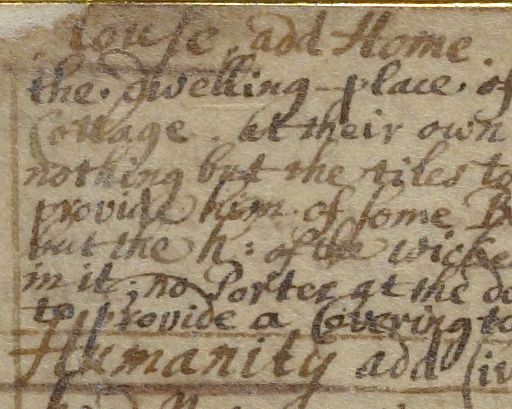 House. add Home.
the. dwelling-place. of
Cottage. at their own
nothing but the tiles to
provide him. of some
but the h: of the wicke
m it; no Porter at the do
to provide a Covering to
Humanity add Civ